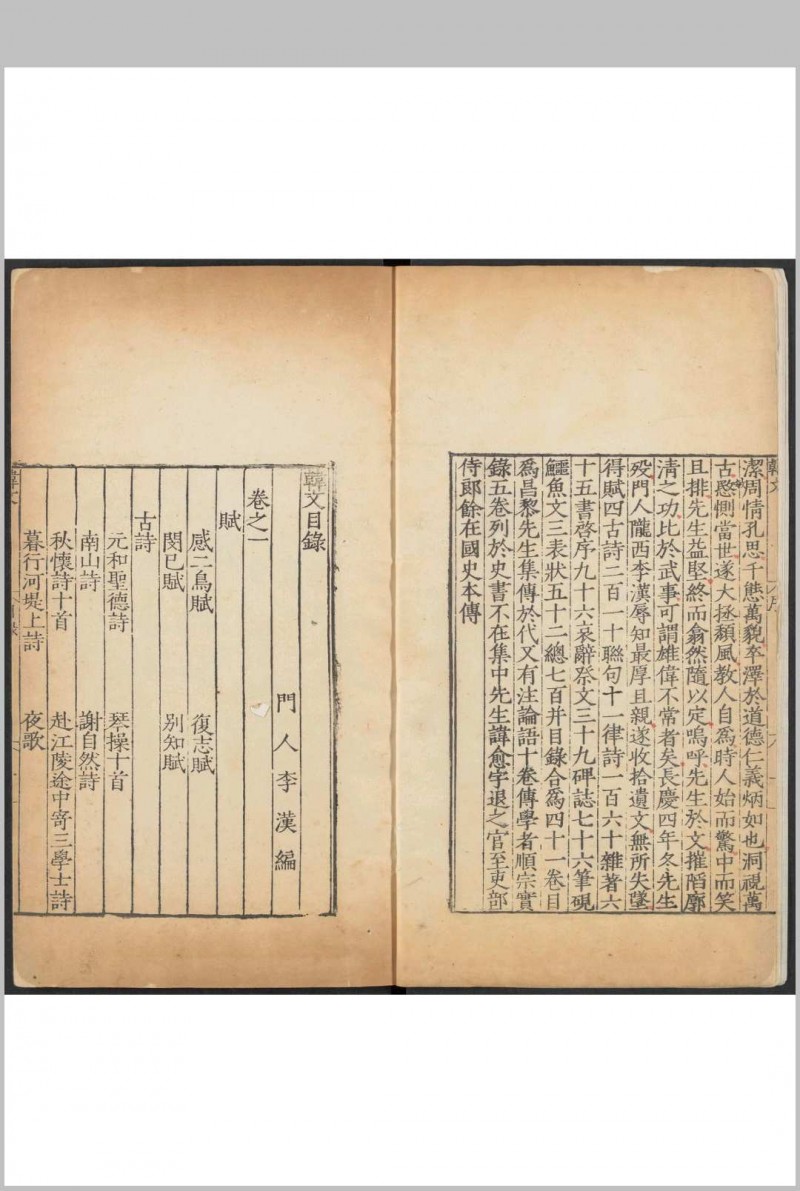 韓文
潔周情孔思千態萬貌卒澤於道德仁義炳如也洞視萬
古愍惻當世遂大拯頹風教人自爲時人始而驚中而笑
且排先生益堅終而翕然隨以定嗚呼先生於文摧陷廓
清之功比於武事可謂雄偉不常者矣長慶四年冬先生
歿門人隴西李漢辱知最厚且親遂收拾遺文無所失墜
得賦四古詩二百一十聯句十一律詩一百六十雜著六
十五書啓序九十六哀辭祭文三十九碑誌七十六筆硯
鱷魚文三表狀五十二總七百并目錄合爲四十一卷目
爲昌黎先生集傳於代又有注論語十卷傳學者順宗實
錄五卷列於史書不在集中先生諱愈字退之官至吏部
侍郎餘在國史本傳
韓文目錄
門人李漢編
卷之一
賦
感二鳥賦 復志賦
閔已賦 別知賦
古詩
元和聖德詩 琴操十首
南山詩 謝自然詩
秋懷詩十首 赴江陵途中寄三學士詩
暮行河堤上詩 夜歌
韓文